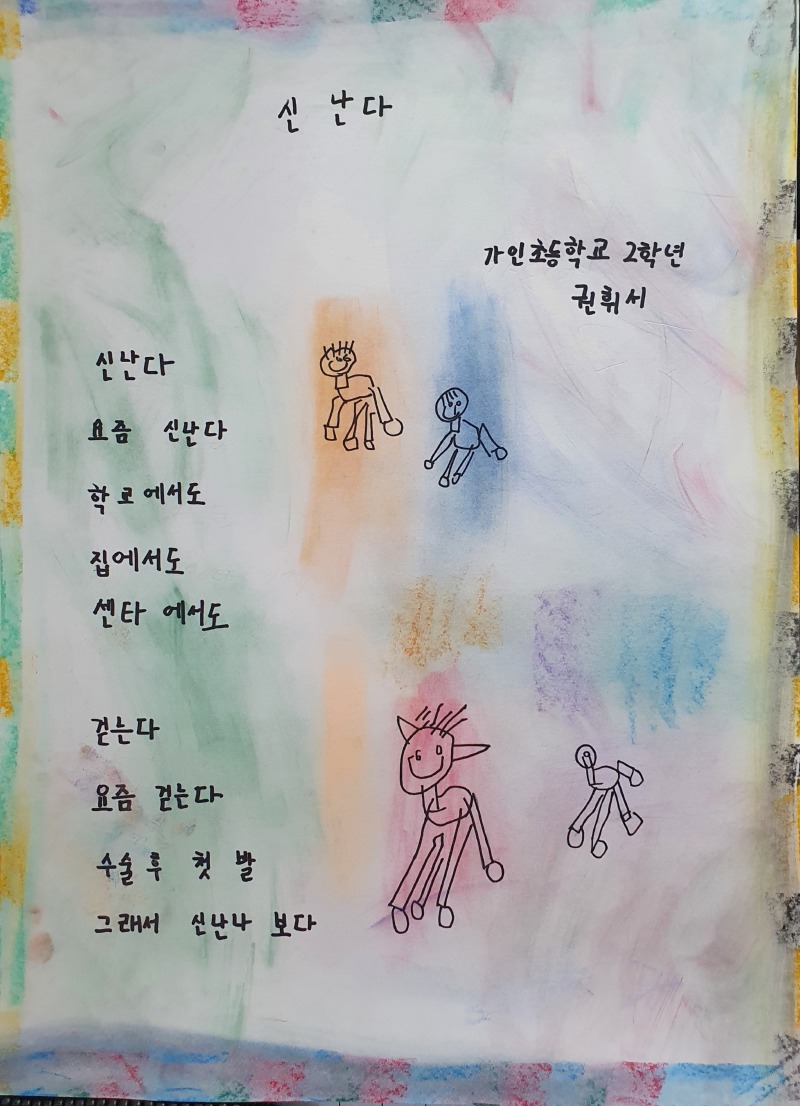 신 난다
가인초등학교 2학년
권휘서
신난다
요즘 신난다
학교에서도
집에서도
센타 에서도
걷는다
요즘 걷는다
수술 후 첫 발
그래서 신난나 보다